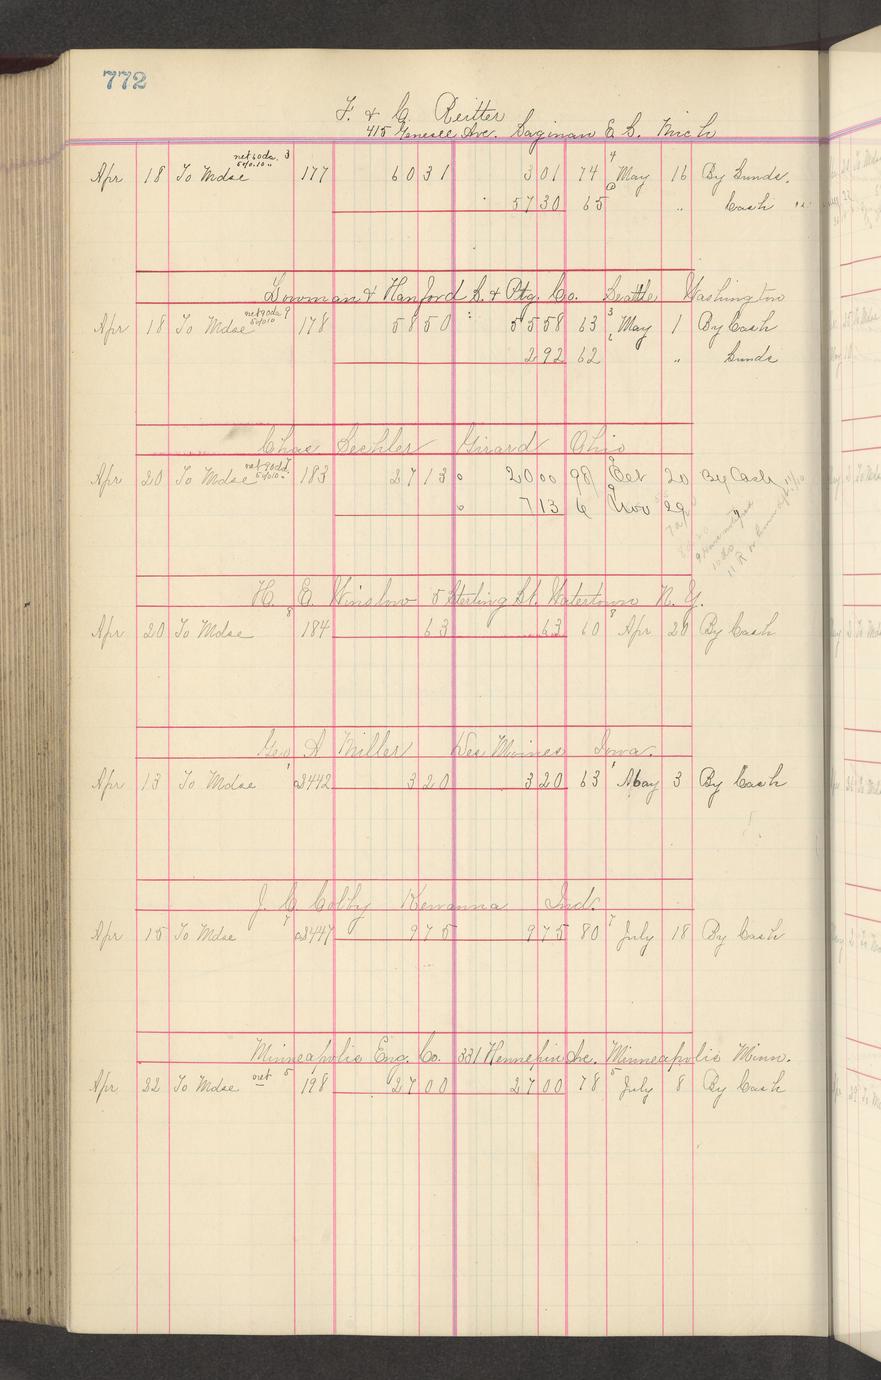 772
F. & C. Reitter
415 Genesee Ave. Saginaw E. S. Mich
net 60 ds. 3
5% 10 "
Apr 18 To Mdse 177 6031 301 74 4 May 16 By Sunds.
5730 65 " Cash
Lowman & Hanford S. & Ptg. Co. Seattle Washington
net 90 ds 9
5% 10
Apr 18 To Mdse 178 5850 5558 63 3 May 1 By Cash
292 62 " Sunds
Chas Sechler Girard Ohio
net 90 ds. 7
5% 10
Apr 20 To Mdse 183 2713 2000 98 9 Oct 20 By Cash
713 6 9 Nov 29 "
H. E. Winslow 5 Sterling St. Watertown N. Y.
Apr 20 To Mdse 8 184 63 63 60 8 Apr 20 By Cash
Geo A Miller Des Moines Iowa.
Apr 13 To Mdse 1 a3442 320 320 63 1 May 3 By Cash
J. C. Colby Kewanna Ind.
Apr 15 To Mdse 7 a3447 975 975 80 7 July 18 By Cash
Minneapolis Eng. Co. 331 Hennepin Ave. Minneapolis Minn.
Apr 22 To Mdse net 5 198 2700 2700 78 5 July 8 By Cash